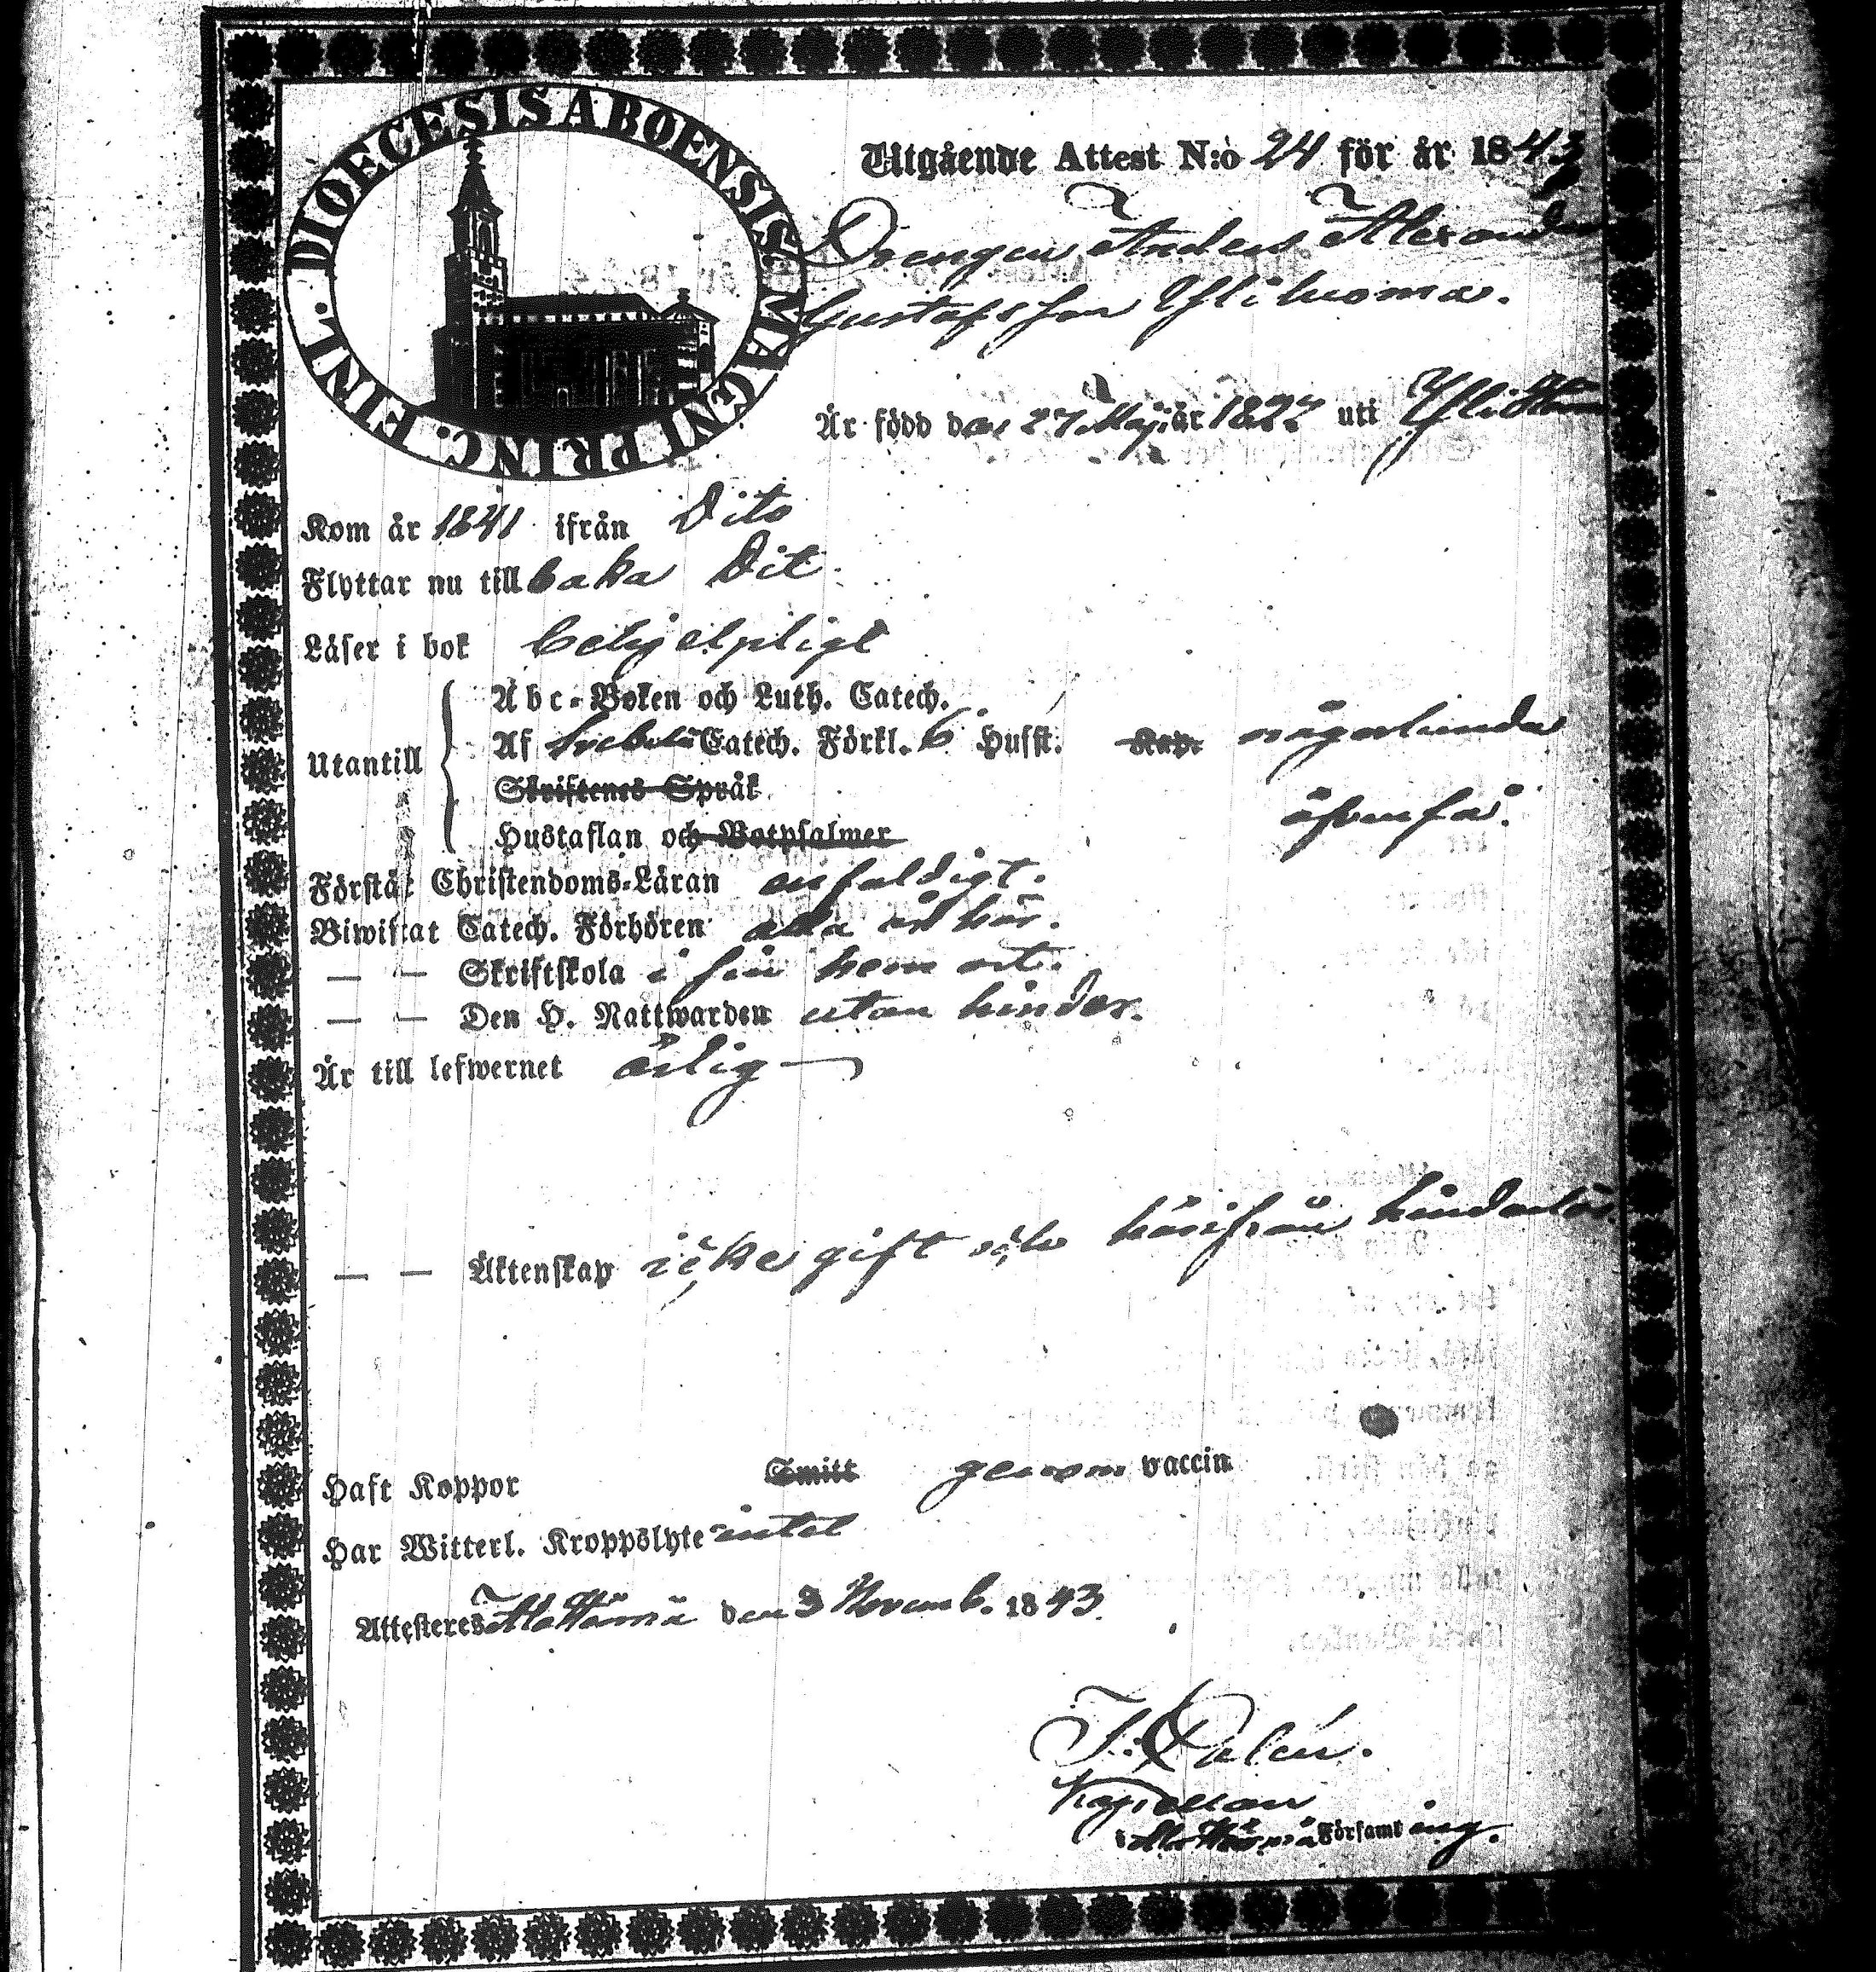 DIOECESIS ABOENSIS. MAGNI PRINC. FINL.
Utgående Attest N:o 24 för år 1843
Drengen Anders Alexander
Gustafsson Ylihuoma.
Är född den 27 Maji år 1822 uti Yli
Kom år 1841 ifrån Dito
Flyttar nu till baka Dit.
Läser i bok behjelpligt
Abc-Boken och Luth. Catech.
Utantill Af Svebelii Catech. Förkl. 6 Husst. Kap. någorlunda
Skriftenes Språk
Hustaflan och Botpsalmer äfvenså.
Förstår Christendoms-Läran enfaldigt.
Biwistat Catech. Förhören alla år här.
— — Skriftskola i sin hem ort.
— — Den H. Nattwarden utan hinder.
Är till lefwernet ärlig —
— — Äktenskap icke gift och härifrån hinderlös.
Haft Koppor Smitt genom vaccin
Har Witterl. Kroppslyte intet
Attesteres Alahärmä den 3 Novemb. 1843.
J. Dalén.
Kapellan
i Alahärmä Församling.